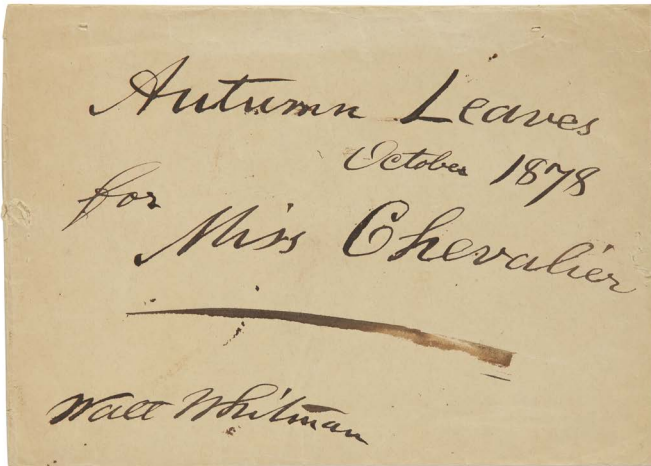 Autumn Leaves
October 1878
for
Miss Chevalier
Walt Whitman